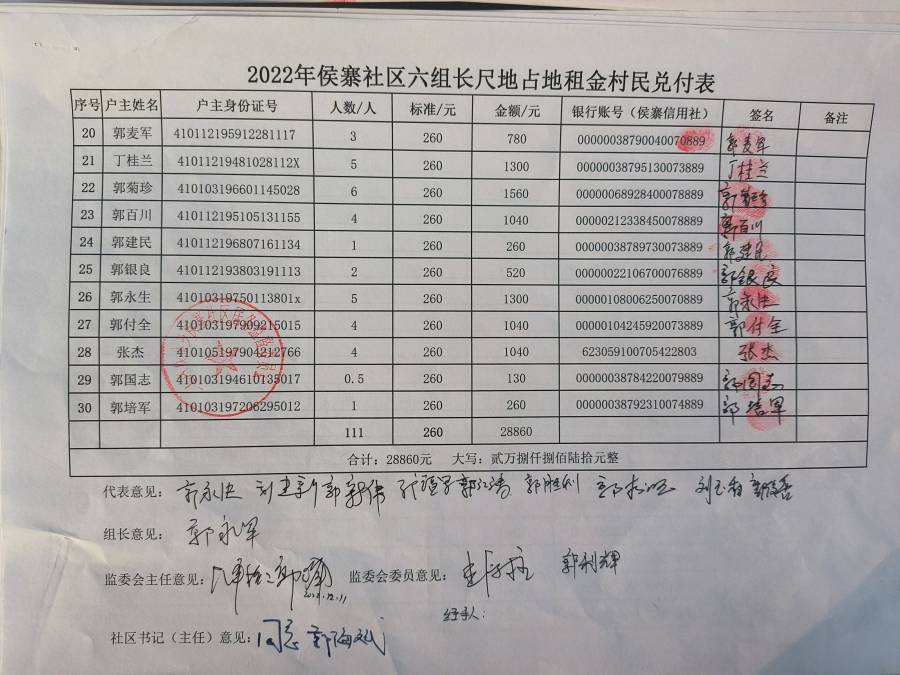 2022年侯寨社区六组长尺地占地租金村民兑付表
序号 户主姓名 户主身份证号 人数/人 标准/元 金额/元 银行账号（侯寨信用社） 签名 备注
20 郭麦军 410112195912281117 3 260 780 00000038790040070889 郭麦军
21 丁桂兰 41011219481028112X 5 260 1300 00000038795130073889 丁桂兰
22 郭菊珍 410103196601145028 6 260 1560 00000068928400078889 郭菊珍
23 郭百川 410112195105131155 4 260 1040 00000212338450078889 郭百川
24 郭建民 410112196807161134 1 260 260 00000038789730073889 郭建民
25 郭银良 410112193803191113 2 260 520 00000022106700076889 郭银良
26 郭永生 41010319750113801x 5 260 1300 00000108006250070889 郭永生
27 郭付全 410103197909215015 4 260 1040 00000104245920073889 郭付全
28 张杰 410105197904212766 4 260 1040 623059100705422803 张杰
29 郭国志 410103194610135017 0.5 260 130 00000038784220079889 郭国志
30 郭培军 410103197206295012 1 260 260 00000038792310074889 郭培军
111 260 28860
合计：28860元 大写：贰万捌仟捌佰陆拾元整
代表意见： 郭永忠 刘建新 郭新伟 郭胜利
组长意见： 郭永军
监委会主任意见： 2022.12.11 监委会委员意见： 郭利辉
经手人：
社区书记（主任）意见： 同意 郭海斌